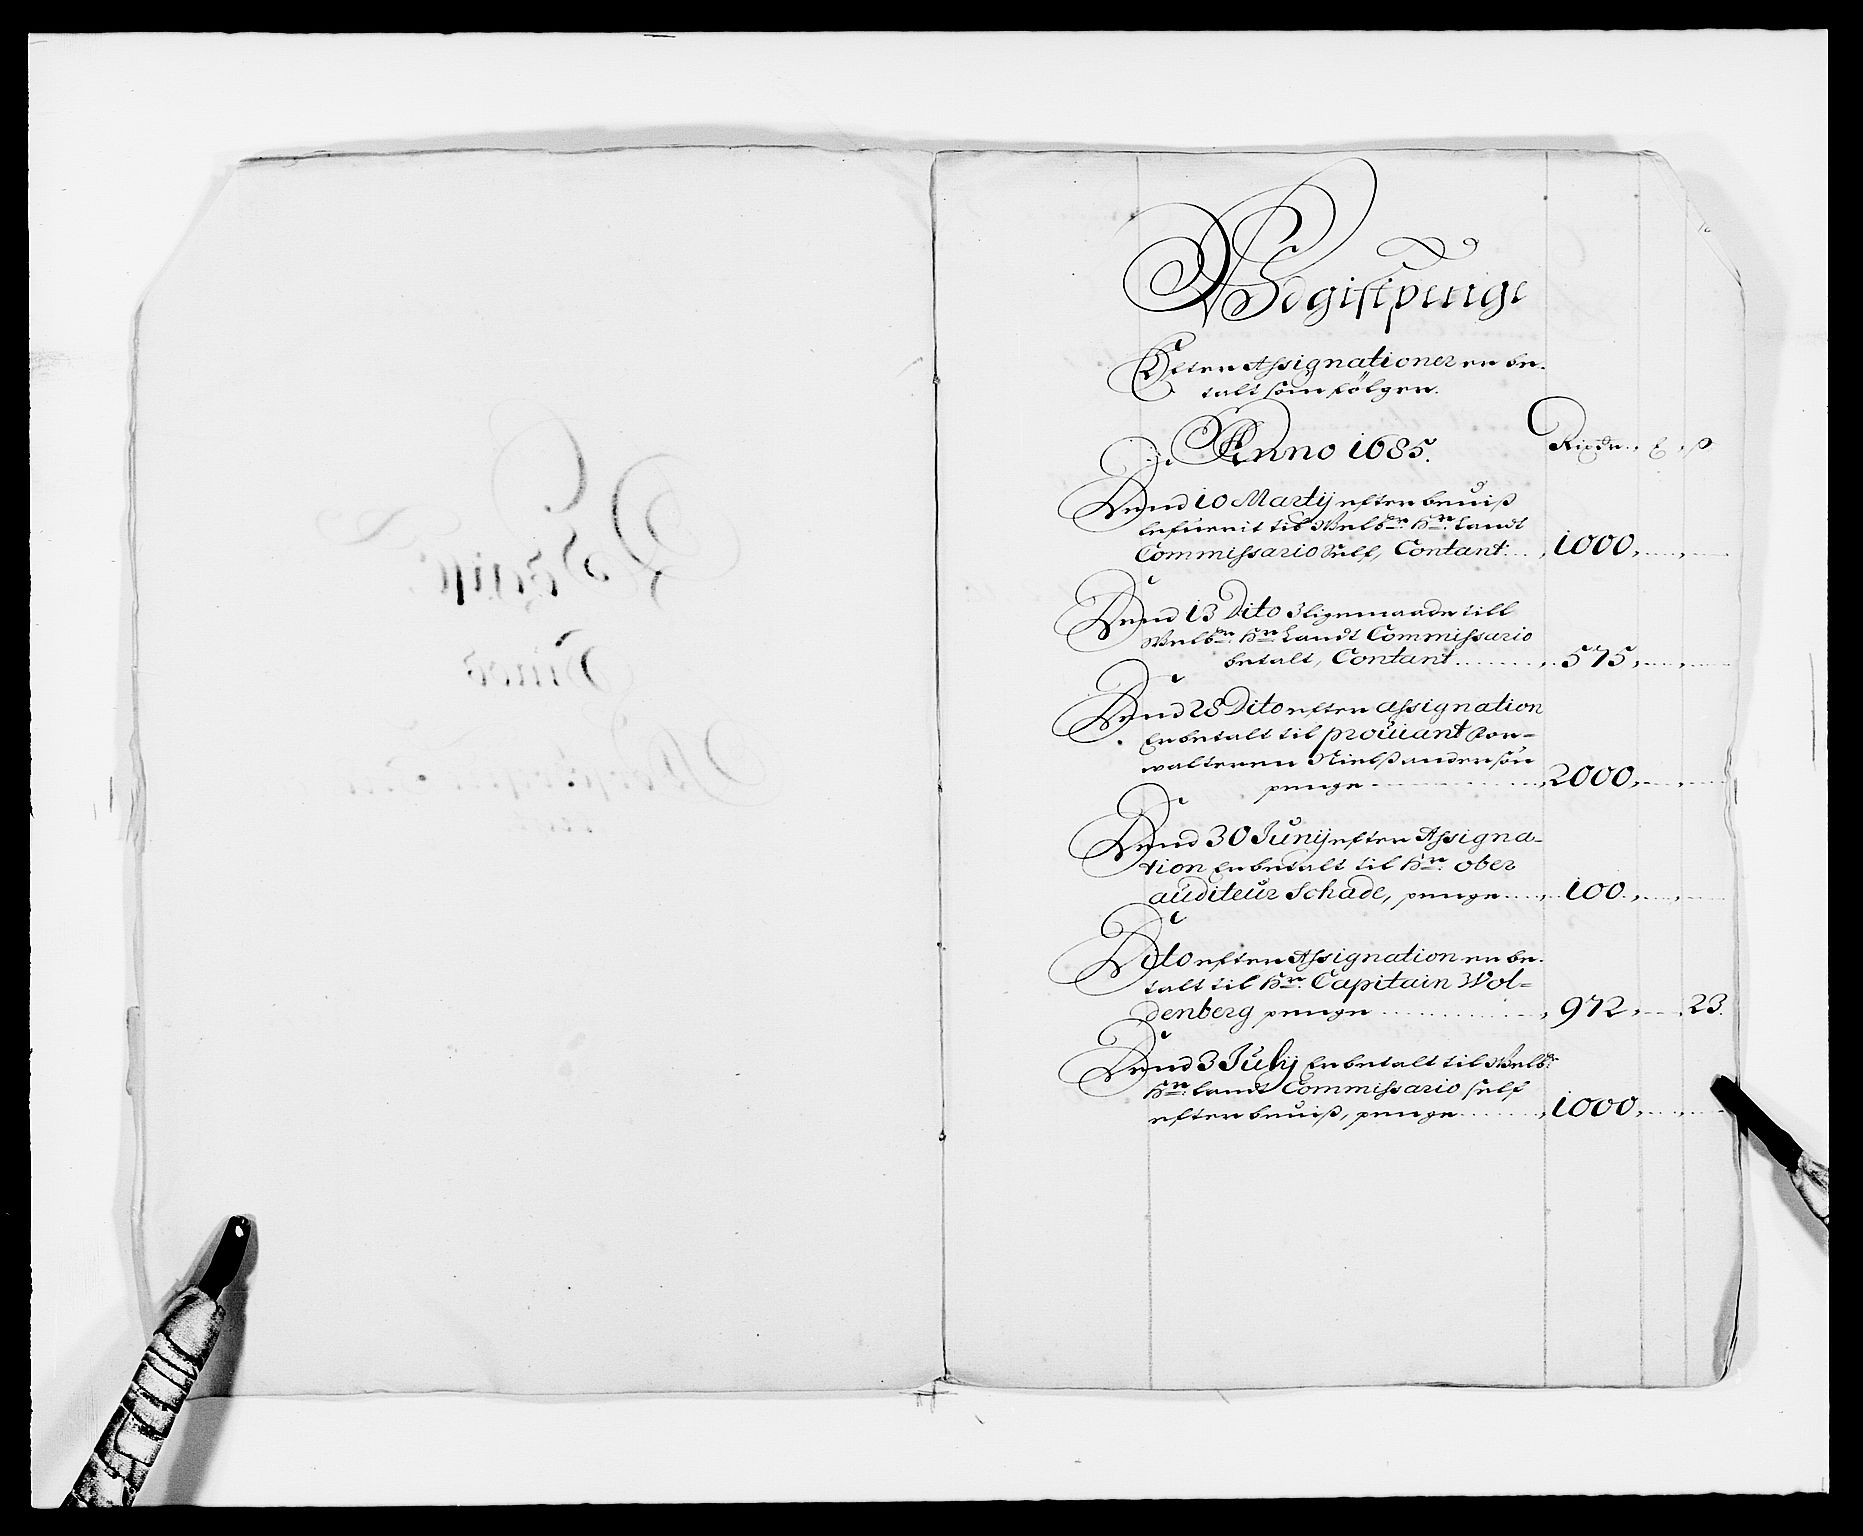 Udgiftpenge
Efter Assignationer er be-
talt som følger.
Anno 1685. Rixdr. ß
Dend 10 Martij efter beuiß
lefuerit til Welb: Hr: Landt
Commissario Self, Contant 1000
Dend 13 Dito Ligemaade till
Welb: Hr: Landt Commissario
betalt, Contant 575
Dend 28 Dito efter assignation
Erbetalt til proüiant For-
walteren Nielß andersøn
penge 2000
Dend 30 Junij efter Assigna-
tion Erbetalt til Hr: ober
auditeur Schade, penge 100
Dito efter Assignation er be-
talt til Hr: Capitain Wol=
denberg penge 972 23
Dend 3 Julij Erbetalt til Welb:
Hr: Landt Commissario self
efter beuiß, penge 1000